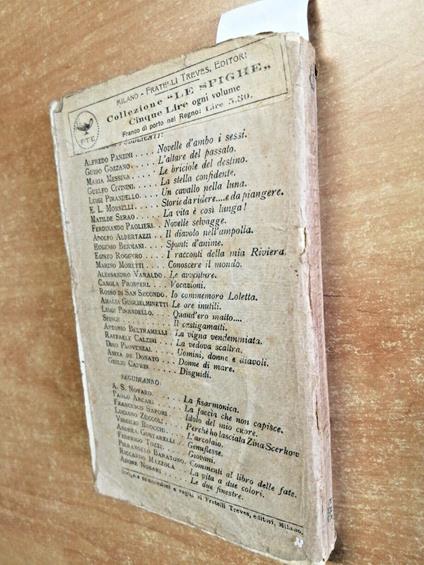 MILANO - FRATELLI TREVES, EDITORI
Collezione "LE SPIGHE"
Cinque Lire ogni volume
Franco di porto nel Regno: Lire 5.50.
F.T.E.
ALFREDO PANZINI . . . . Novelle d'ambo i sessi.
GUIDO GOZZANO. . . . . L'altare del passato.
MARIA MESSINA . . . . . Le briciole del destino.
GUELFO CIVININI. . . . La stella confidente.
LUIGI PIRANDELLO. . . . Un cavallo nella luna.
E. L. MORSELLI. . . . Storie da ridere.... e da piangere.
MATILDE SERAO . . . . . La vita è così lunga!
FERDINANDO PAOLIERI. . Novelle selvagge.
ADOLFO ALBERTAZZI . . . Il diavolo nell'ampolla.
EUGENIO BERMANI. . . . Spunti d'anime.
EGISTO ROGGERO. . . . I racconti della mia Riviera.
MARINO MORETTI . . . . Conoscere il mondo.
ALESSANDRO VARALDO. . Le avventure.
CAROLA PROSPERI. . . . Vocazioni.
ROSSO DI SAN SECONDO. Io commemoro Loletta.
AMALIA GUGLIELMINETTI Le ore inutili.
LUIGI PIRANDELLO. . . . Quand'ero matto....
SFINGE . . . . . Il castigamatti.
ANTONIO BELTRAMELLI . La vigna vendemmiata.
RAFFAELE CALZINI . . . La vedova scaltra.
DINO PROVENZAL . . . Uomini, donne e diavoli.
ANNA DE DONATO . . . Donne di mare.
GIULIO CAPRIN . . . . Disguidi.
SEGUIRANNO:
A. S. NOVARO. . . . . La fisarmonica.
PAOLO ARCARI . . . . La faccia che non capisce.
FRANCESCO SAPORI . . . Idolo del mio cuore.
LUCIANO ZUCCOLI. . . . Perchè ho lasciata Zina Scerkow
VIRGILIO BROCCHI . . . L'arcolaio.
FEDERIGO TOZZI . . . . Giovani.
Commenti al libro delle fate.
RICCARDO MAZZOLA . . La vita a due colori.
Le due finestre.
e vaglia ai Fratelli Treves, editori, Milano.